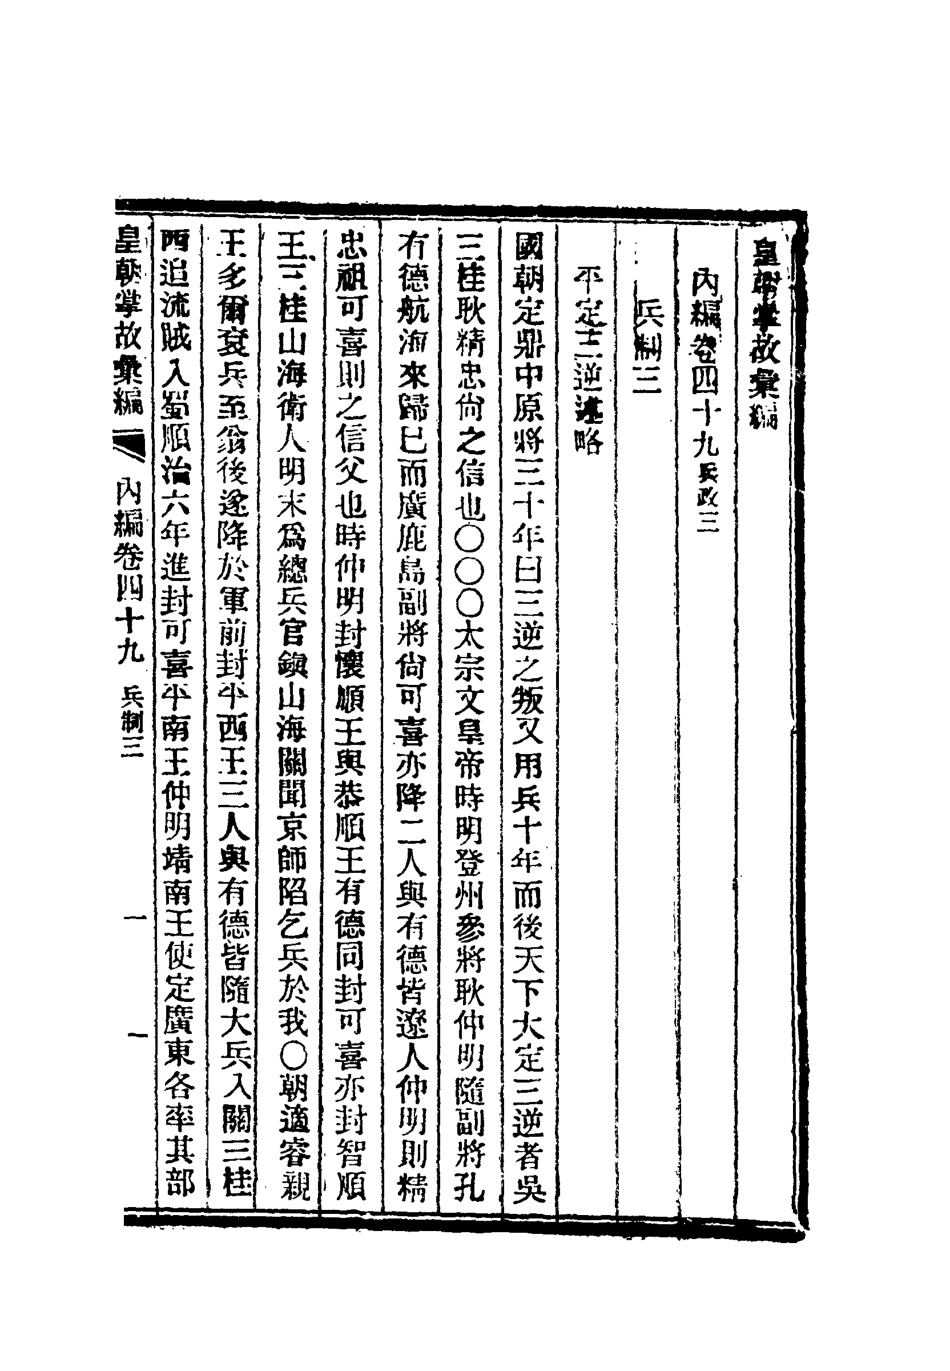 皇朝掌故彙編
內編卷四十九兵政三
兵制三
平定三逆述略
國朝定鼎中原將三十年曰三逆之叛又用兵十年而後天下大定三逆者吳
三桂耿精忠尙之信也○○○太宗文皇帝時明登州參將耿仲明隨副將孔
有德航海來歸已而廣鹿島副將尙可喜亦降二人與有德皆遼人仲明則精
忠祖可喜則之信父也時仲明封懷順王與恭順王有德同封可喜亦封智順
王三桂山海衛人明末爲總兵官鎭山海關聞京師陷乞兵於我○朝適睿親
王多爾袞兵至翁後遂降於軍前封平西王三人與有德皆隨大兵入關三桂
西追流賊入蜀順治六年進封可喜平南王仲明靖南王使定廣東各率其部
皇朝掌故彙編 內編卷四十九 兵制三 一 一